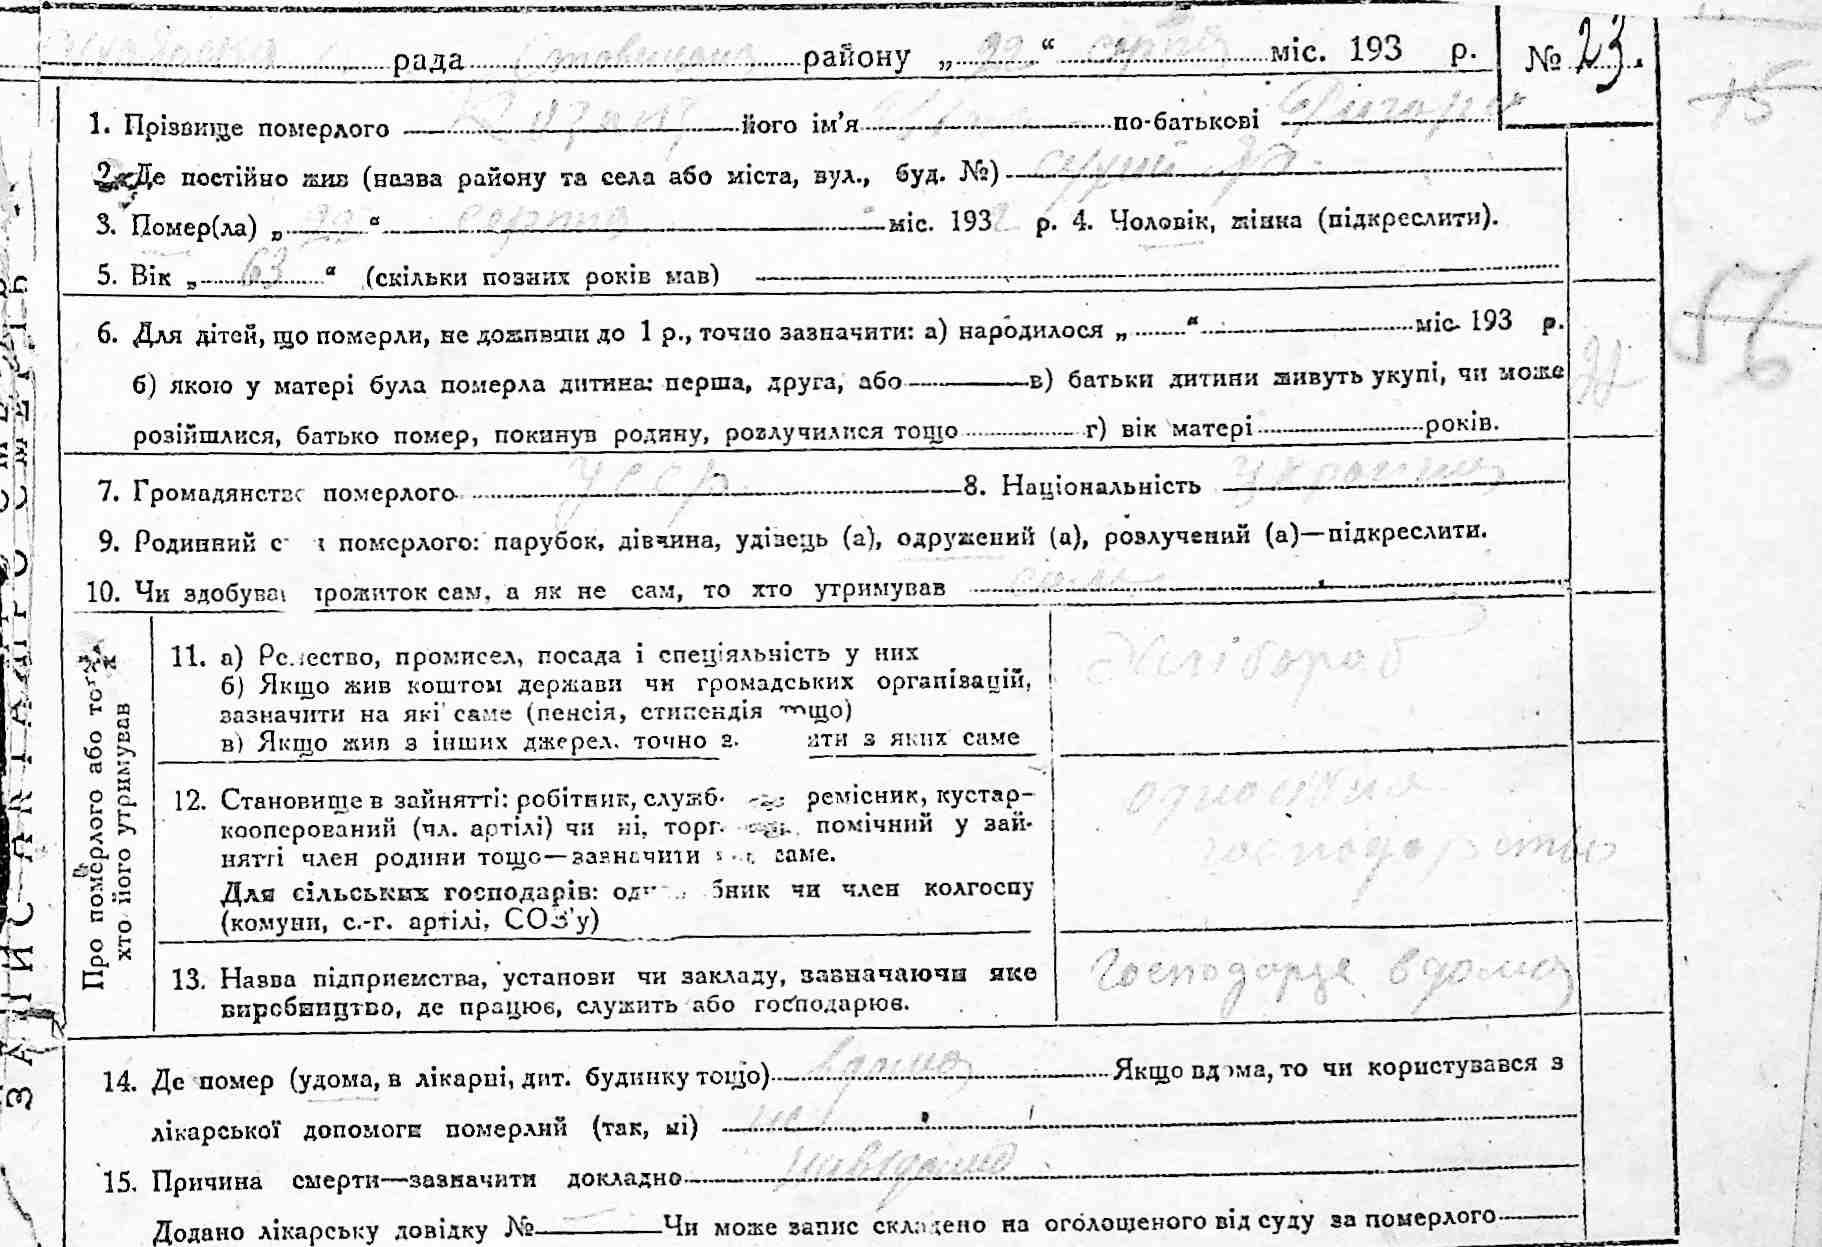 рада Ставищан району „22“ серпня міс. 193 р. № 23.
1. Прізвище померлого його ім’я по-батькові Григоро
2. Де постійно жив (назва району та села або міста, вул., буд. №)
3. Помер(ла) „22“ серпня міс. 1932 р. 4. Чоловік, жінка (підкреслити).
15
5. Вік „63“ (скільки повних років мав)
6. Для дітей, що померли, не доживши до 1 р., точно зазначити: а) народилося „ “ міс. 193 р.
56
б) якою у матері була померла дитина: перша, друга, або в) батьки дитини живуть укупі, чи може
розійшлися, батько помер, покинув родину, розлучилися тощо г) вік матері років.
7. Громадянство померлого УССР 8. Національність Українц
9. Родинний с померлого: парубок, дівчина, удівець (а), одружений (а), розлучений (а)—підкреслити.
10. Чи здобував прожиток сам, а як не сам, то хто утримував сам
ЗАПИС АКТА ПРО СМЕРТЬ
Про померлого або того,
хто його утримував
11. а) Ремество, промисел, посада і спеціяльність у них
б) Якщо жив коштом держави чи громадських організацій,
зазначити на які саме (пенсія, стипендія тощо)
в) Якщо жив з інших джерел, точно з ати з яких саме
Хлібороб
12. Становище в зайнятті: робітник, служб ремісник, кустар-
кооперований (чл. артілі) чи ні, торг помічний у зай-
нятті член родини тощо—зазначити саме.
Для сільських господарів: од бник чи член колгоспу
(комуни, с.-г. артілі, СОЗ’у)
господарство
13. Назва підприємства, установи чи закладу, зазначаючи яке
виробництво, де працює, служить або господарює.
Господарце вдома
14. Де помер (удома, в лікарні, дит. будинку тощо) вдома Якщо вдома, то чи користувався з
лікарської допомоги померлий (так, ні) ні
15. Причина смерти—зазначити докладно невідомо
Додано лікарську довідку № Чи може запис складено на оголошеного від суду за померлого